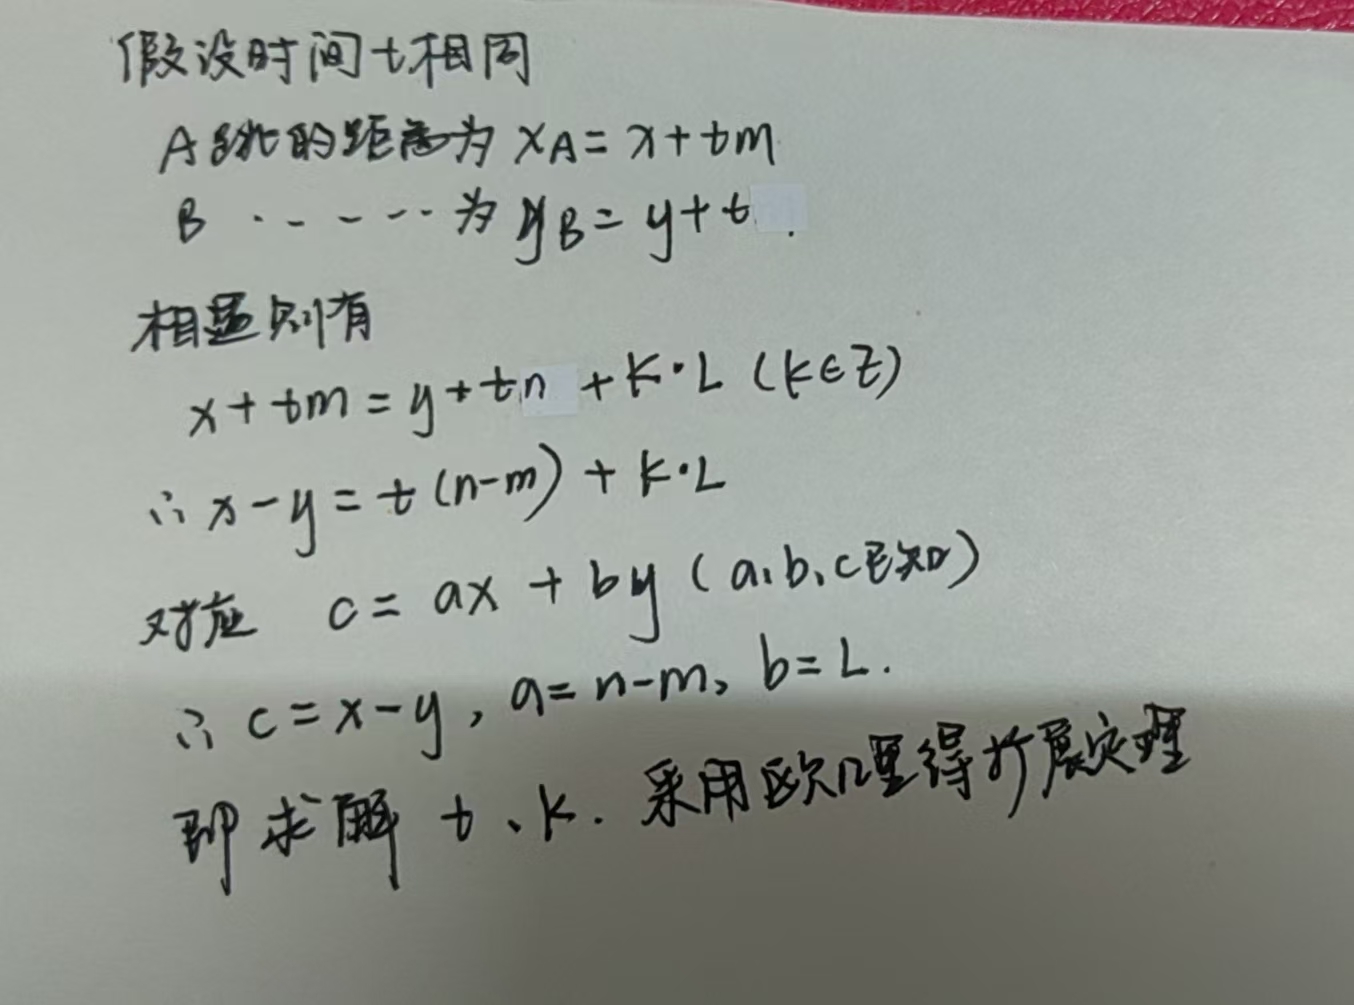 假设时间t相同
A跳的距离为 xA = x + tm
B ······ 为 yB = y + t
相遇则有
x + tm = y + tn + K·L (K∈Z)
∴ x - y = t(n-m) + K·L
对应 c = ax + by (a、b、c已知)
∴ c = x - y , a = n-m, b = L.
即求解 t、k. 采用欧几里得扩展定理